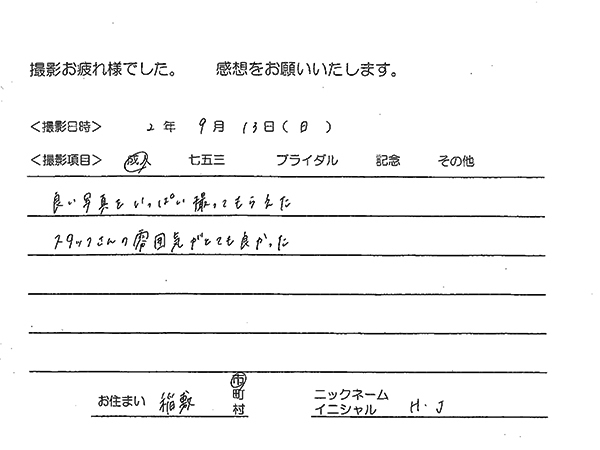 撮影お疲れ様でした。 感想をお願いいたします。
＜撮影日時＞ 2年 9月 13日(日)
＜撮影項目＞ 成人 七五三 ブライダル 記念 その他
良い写真をいっぱい撮ってもらえた
スタッフさんの雰囲気がとても良かった
お住まい 稲敷 市町村 ニックネーム イニシャル H.J